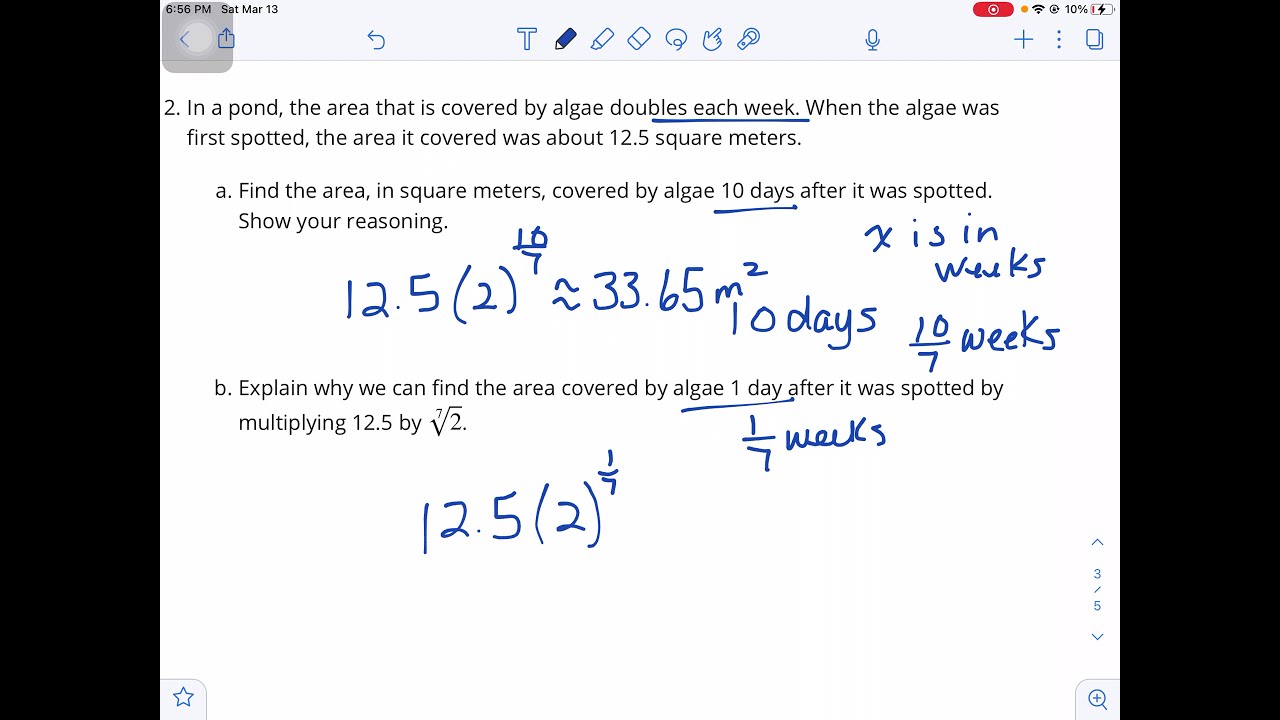 6:56 PM Sat Mar 13
10%
T
2. In a pond, the area that is covered by algae doubles each week. When the algae was
first spotted, the area it covered was about 12.5 square meters.
a. Find the area, in square meters, covered by algae 10 days after it was spotted.
Show your reasoning.
x is in
weeks
12.5(2)^(10/7) ≈ 33.65 m²
10 days
10/7 weeks
b. Explain why we can find the area covered by algae 1 day after it was spotted by
multiplying 12.5 by ⁷√2.
1/7 weeks
12.5(2)^(1/7)
3
/
5